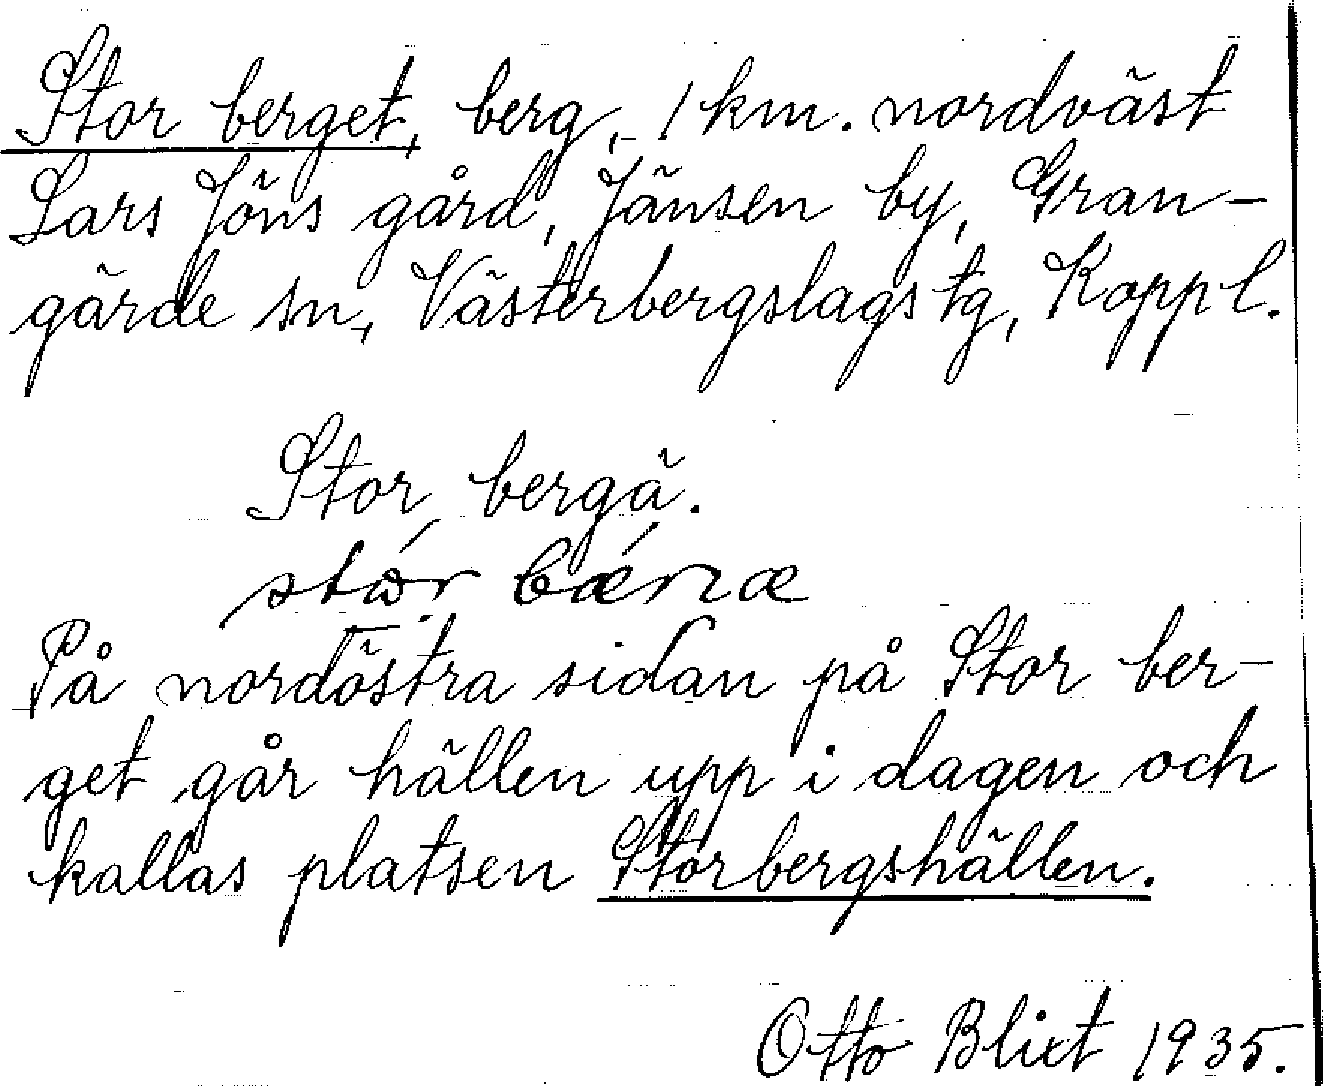 Stor berget, berg, 1 km. nordväst
Lars Jöns gård, Jänsen by, Gran-
gärde sn, Västerbergslags tg, Koppl.
Stor bergä.
stór bǽrıæ
På nordöstra sidan på Stor ber-
get går hällen upp i dagen och
kallas platsen Storbergshällen.
Otto Blixt 1935.